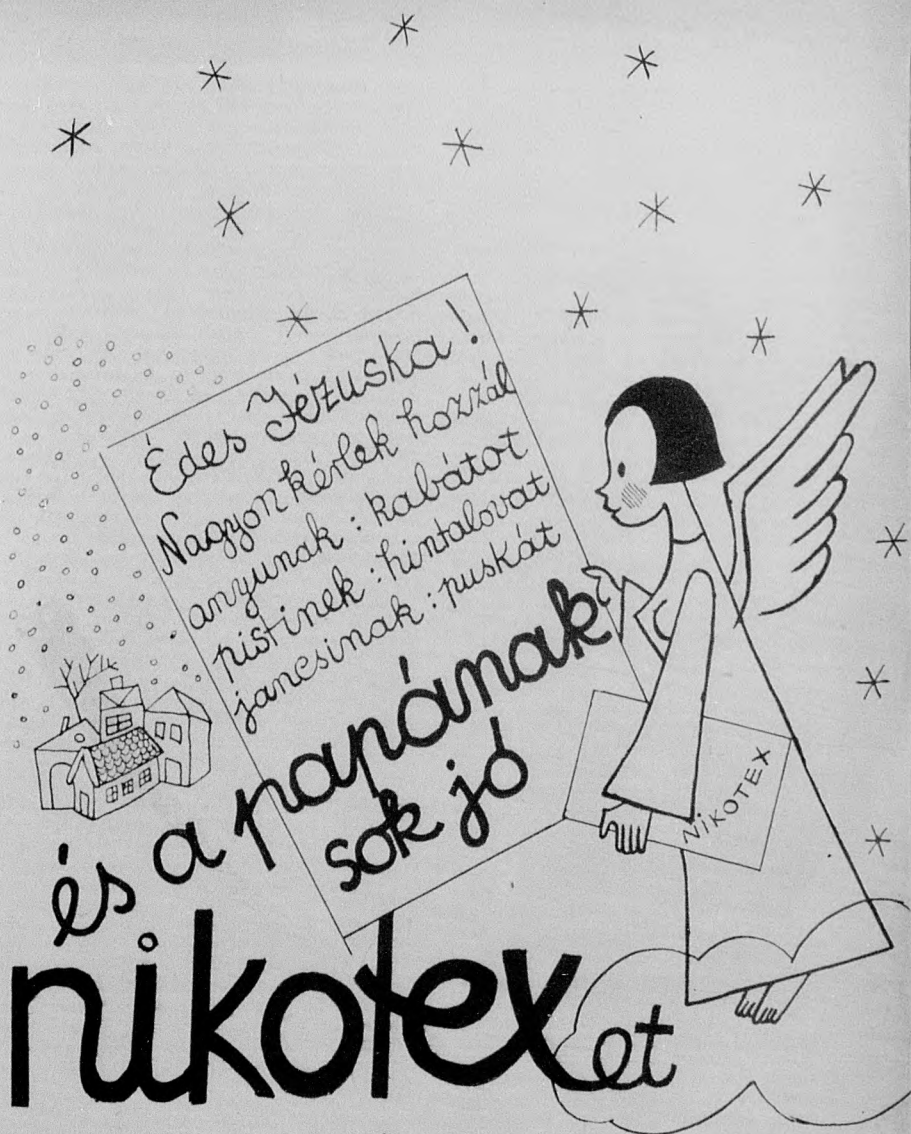 Édes Jézuska!
Nagyon kérlek hozzál
anyunak: kabátot
pistinek: hintalovat
jancsinak: puskát
és a papának
sok jó
nikotexet
NIKOTEX